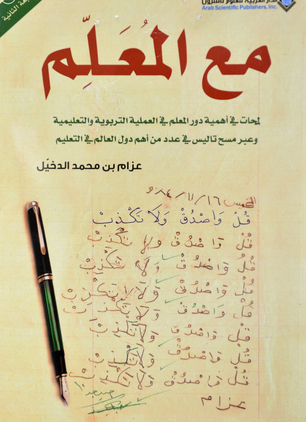 الدار العربية للعلوم ناشرون
Arab Scientific Publishers, Inc.
الثانية
مع المُعَلِّم
لمحات في أهمية دور المعلم في العملية التربوية والتعليمية
وعبر مسح تاليس في عدد من أهم دول العالم في التعليم
عزام بن محمد الدخيّل
٨٤/١١/١٦
قُلْ وَاصْدُقْ وَلَا تَكْذِبْ
قُلْ وَاصْدُقْ وَلَا تَكْذِبْ
قُلْ وَاصْدُقْ وَلَا تَكْذِبْ
قُلْ وَاصْدُقْ وَلَا تَكْذِبْ
قُلْ وَاصْدُقْ وَلَا تَكْذِبْ
قُلْ وَاصْدُقْ وَلَا تَكْذِبْ
قُلْ وَاصْدُقْ وَلَا تَكْذِبْ
قُلْ وَاصْدُقْ وَلَا تَكْذِبْ
عزام